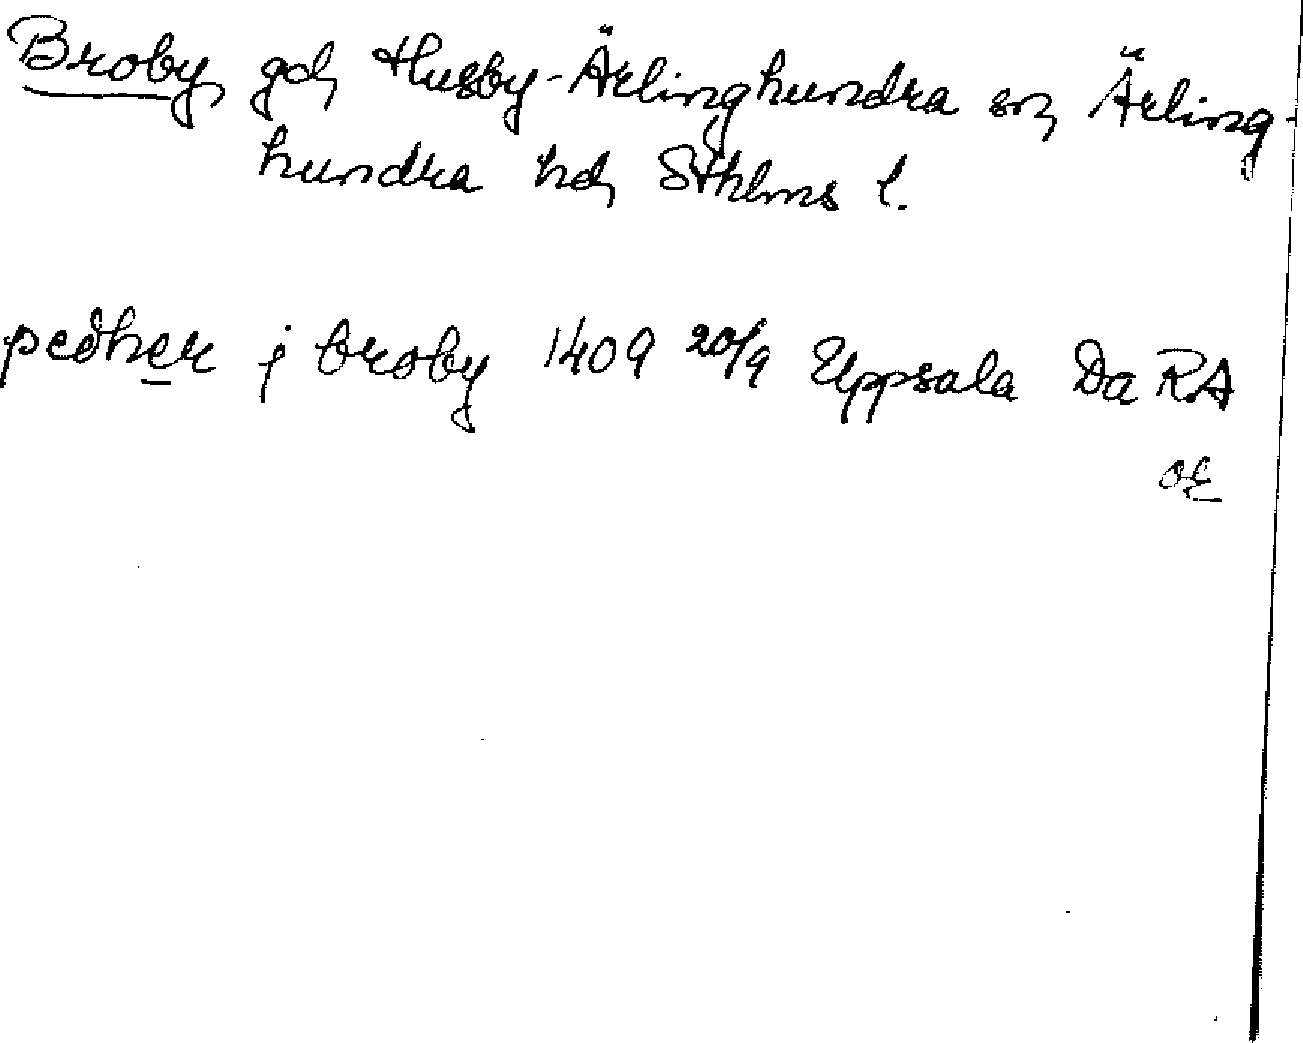 Broby, gd, Husby-Ärlinghundra sn, Ärling-
hundra hd, Sthlms l.
pedher j broby 1409 20/9 Uppsala Da RA
OE